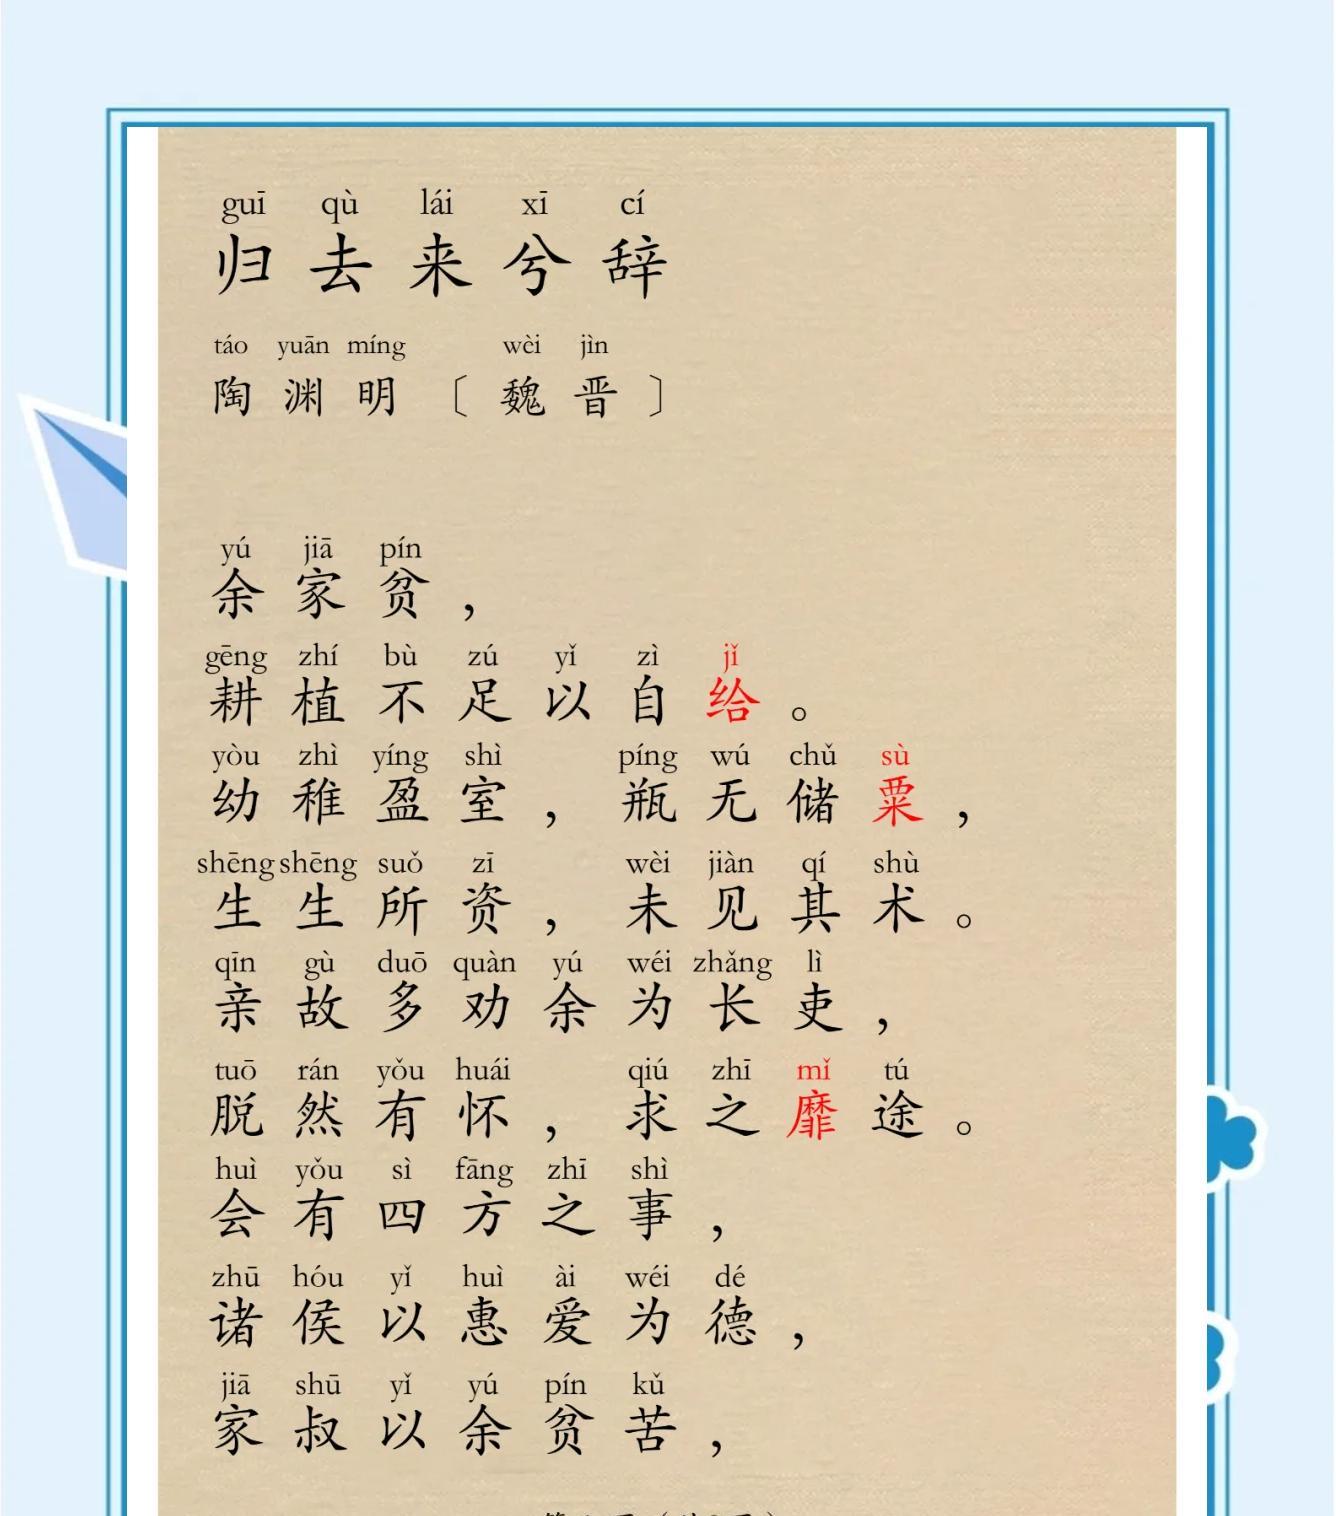 guī qù lái xī cí
归去来兮辞
táo yuān míng wèi jìn
陶渊明〔魏晋〕
yú jiā pín
余家贫，
gēng zhí bù zú yǐ zì jǐ
耕植不足以自给。
yòu zhì yíng shì píng wú chǔ sù
幼稚盈室，瓶无储粟，
shēng shēng suǒ zī wèi jiàn qí shù
生生所资，未见其术。
qīn gù duō quàn yú wéi zhǎng lì
亲故多劝余为长吏，
tuō rán yǒu huái qiú zhī mǐ tú
脱然有怀，求之靡途。
huì yǒu sì fāng zhī shì
会有四方之事，
zhū hóu yǐ huì ài wéi dé
诸侯以惠爱为德，
jiā shū yǐ yú pín kǔ
家叔以余贫苦，